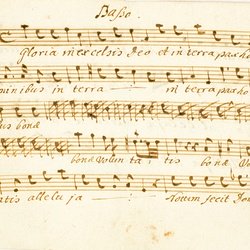 Basso.
Gloria in excelsis Deo et in terra pax ho
minibus in terra in terra pax ho
bus bonæ
bonæ volun ta tis bonæ vo
tatis alleluja